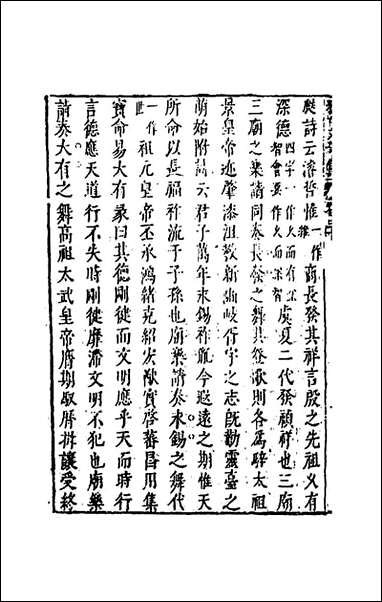 義詩云濬哲惟一作維商長發其祥言殷之先祖乂有
深德四字一作久而有深智會要作久而深智虞夏二代發禎祥也三廟
三廟之樂請同奏長發之舞其登歌則各爲辭太祖
景皇帝迹肇漆沮敎新岐行宇之志旣勤靈臺之
萌始附詩云君子萬年永錫祚胤今遐遠之期惟天
所命以長福祚流于子孫也廟樂請奏永錫之舞代
一作祖元皇帝丕承鴻緒克紹宏猷實啓蕃昌用集
寳命易大有彖曰其德剛徤而文明應乎天而時行
言德應天道行不失時剛徤靡滯文明不犯也廟樂
請奏大有之舞高祖太武皇帝膺期馭曆揖讓受終